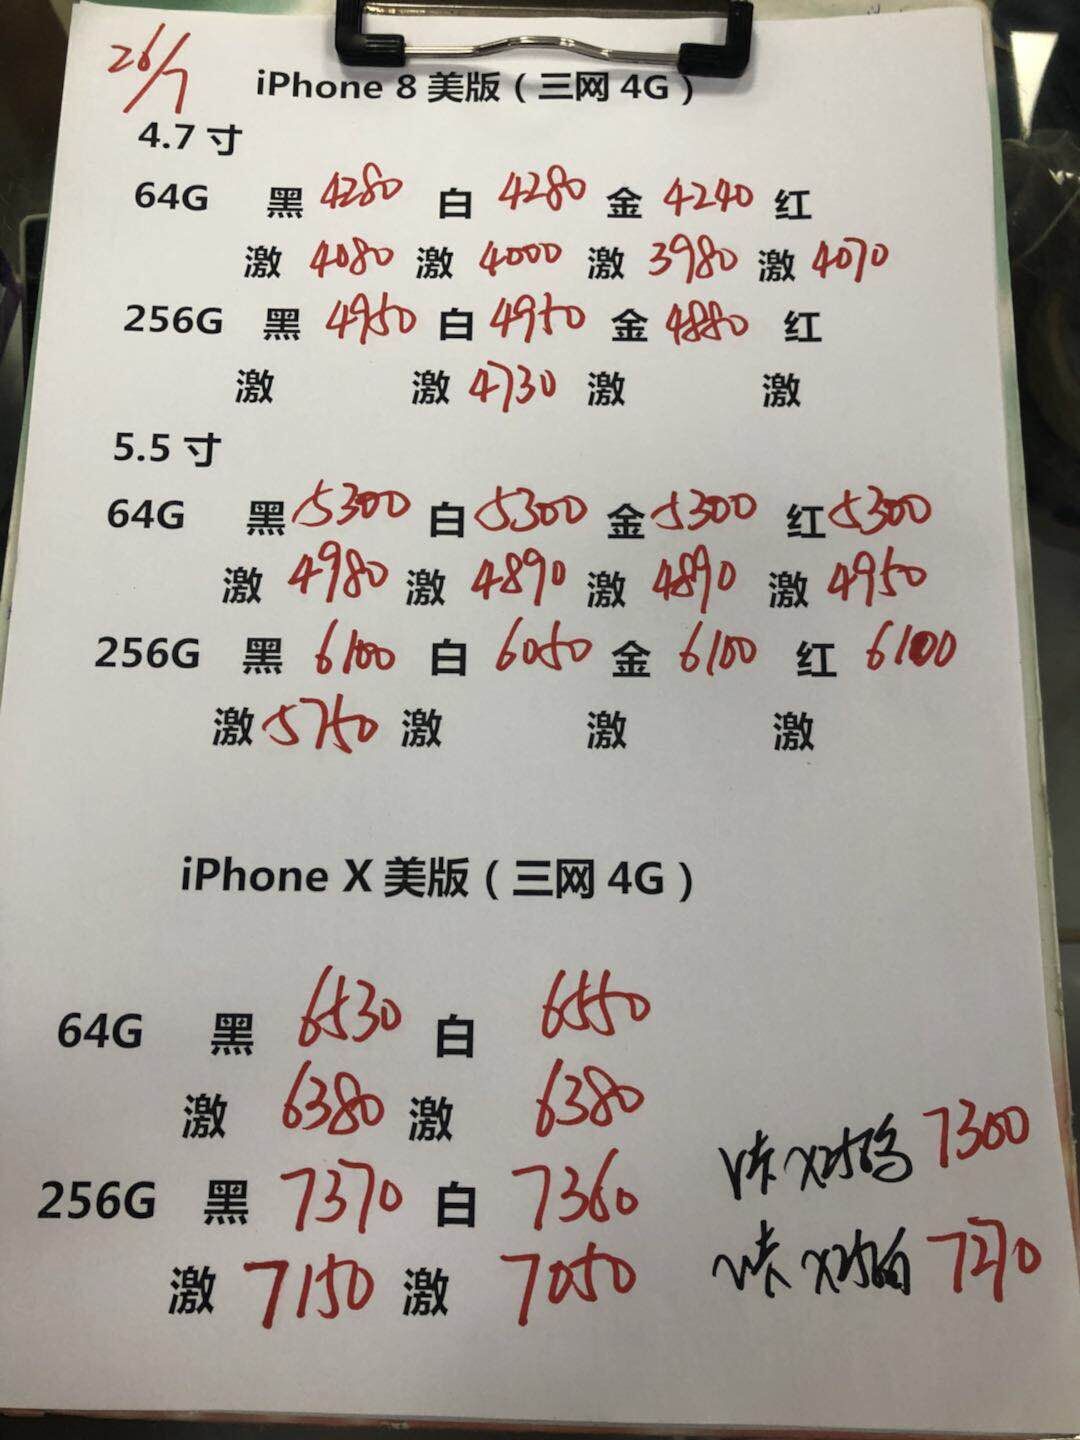 26/7
iPhone 8 美版（三网 4G）
4.7 寸
64G 黑 4280 白 4280 金 4240 红
激 4080 激 4000 激 3980 激 4070
256G 黑 4950 白 4950 金 4880 红
激 激 4730 激 激
5.5 寸
64G 黑 5300 白 5300 金 5300 红 5300
激 4980 激 4890 激 4890 激 4950
256G 黑 6100 白 6050 金 6100 红 6100
激 5750 激 激 激
iPhone X 美版（三网 4G）
64G 黑 6530 白 6550
激 6380 激 6380
256G 黑 7370 白 7360
激 7150 激 7050
7300
7270